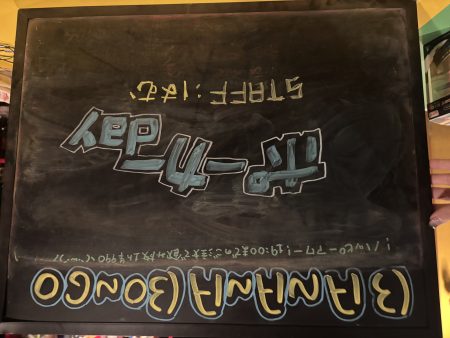 BANANA BONGO
！ハッピーアワー！19:00までのご注文で飲み放1h¥990
ポーカーday
STAFF:はむ